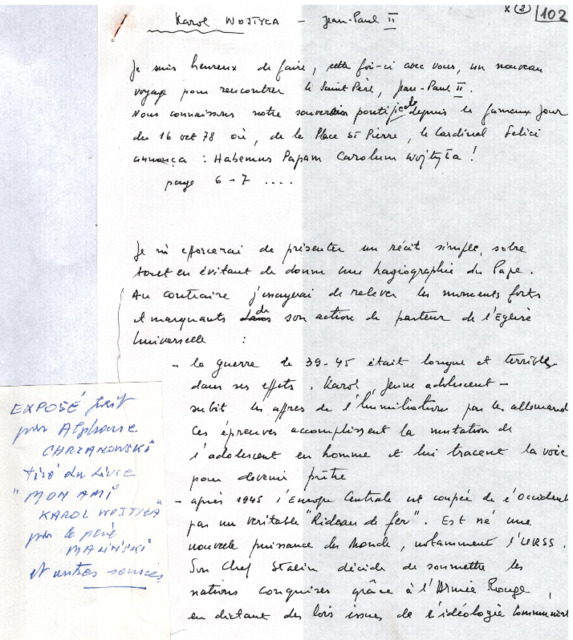 x (2) 102
Karol WOJTYŁA – Jean-Paul II
Je suis heureux de faire, cette fois-ci avec vous, un nouveau
voyage pour rencontrer le Saint Père, Jean-Paul II.
Nous connaissons notre souverain pontife depuis le fameux jour
du 16 oct 78 où, de la Place St Pierre, le Cardinal Felici
annonça : Habemus Papam Carolum Wojtyła !
page 6-7 ....
Je m'efforcerai de présenter un récit simple, sobre
tout en évitant de donner une hagiographie du Pape.
Au contraire j'essayerai de relever les moments forts
et marquants de son action de pasteur de l'Eglise
Universelle :
- la guerre de 39-45 était longue et terrible
dans ses effets. Karol, jeune adolescent –
subit les affres de l'humiliation par les allemands
Ces épreuves accomplissent la mutation de
l'adolescent en homme et lui tracent la voie
pour devenir prêtre
- après 1945 l'Europe Centrale est coupée de l'Occident
par un veritable "Rideau de fer". Est né une
nouvelle puissance du Monde, notamment l'URSS.
Son Chef Staline décide de soumettre les
nations conquises grâce à l'Armée Rouge,
en dictant des lois issues de l'idéologie communiste
EXPOSÉ fait
par Alphonse
CHRZANOWSKI
tiré du Livre
"MON AMI
KAROL WOJTYŁA"
par le père
MALIŃSKI
et autres sources